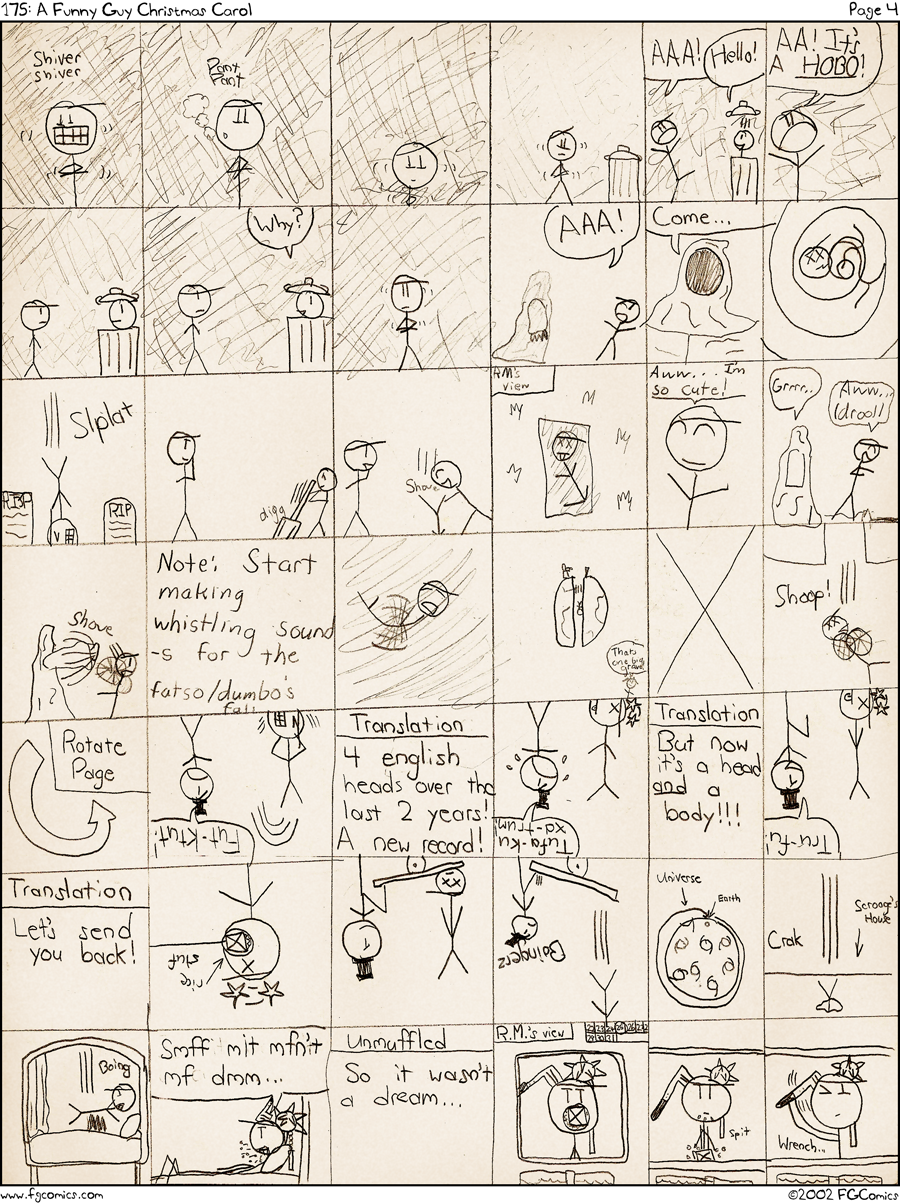 175: A Funny Guy Christmas Carol
Page 4
Shiver
shiver
Pant
Pant
AAA!
Hello!
AA! It's
A HOBO!
Why?
AAA!
Come...
Slplat
RIP
RIP
digg
Shove
RM's
view
Aww... I'm
so cute!
Grrrr..
Aww..
(drool)
Shove
Note: Start
making
whistling sound
-s for the
fatso/dumbo's
fall
Thats
one big
grave!
Shoop!
Rotate
Page
Fut-ktut!
Translation
4 english
heads over the
last 2 years!
A new record!
Tufa-ku
xa-trum!
Translation
But now
it's a head
and a
body!!!
Tru-fu!
Translation
Let's send
you back!
rice
stuf
Boingerz
Universe
Earth
Crak
Scrooge's
House
Boing
Smff mit mfn't
mf dmm...
Unmuffled
So it wasn't
a dream...
R.M.'s view
Spit
Wrench..
www.fgcomics.com
©2002 FGComics